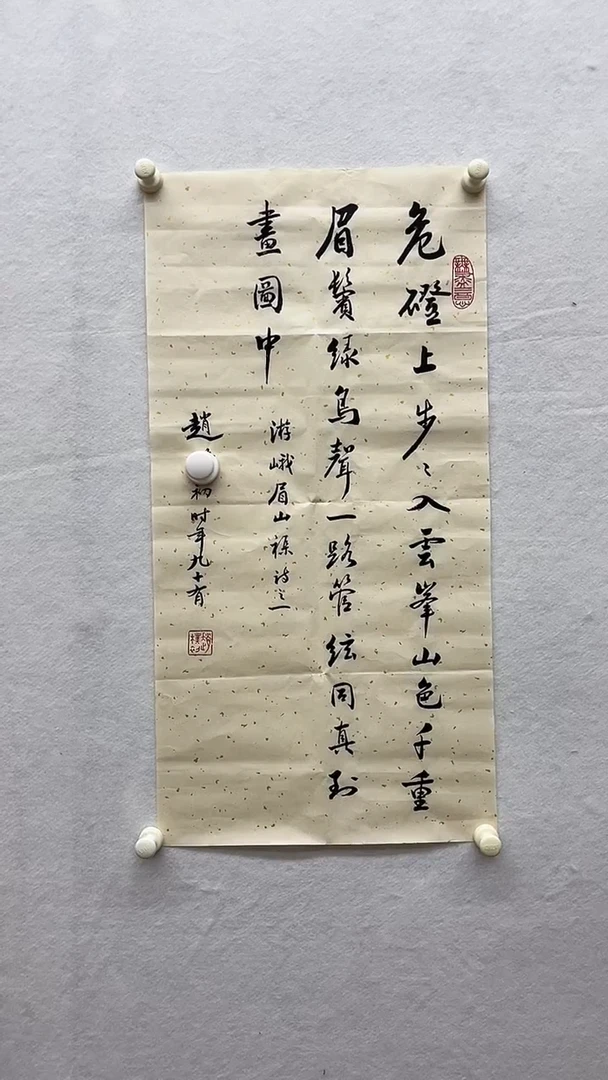 危磴上步〻入雲峯山色千重
眉鬢綠鳥聲一路管絃同真到
畫圖中
游峨眉山雜詩之一
趙初时年九十有